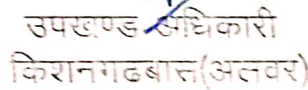 उपखण्ड अधिकारी
किशनगढबास(अलवर)